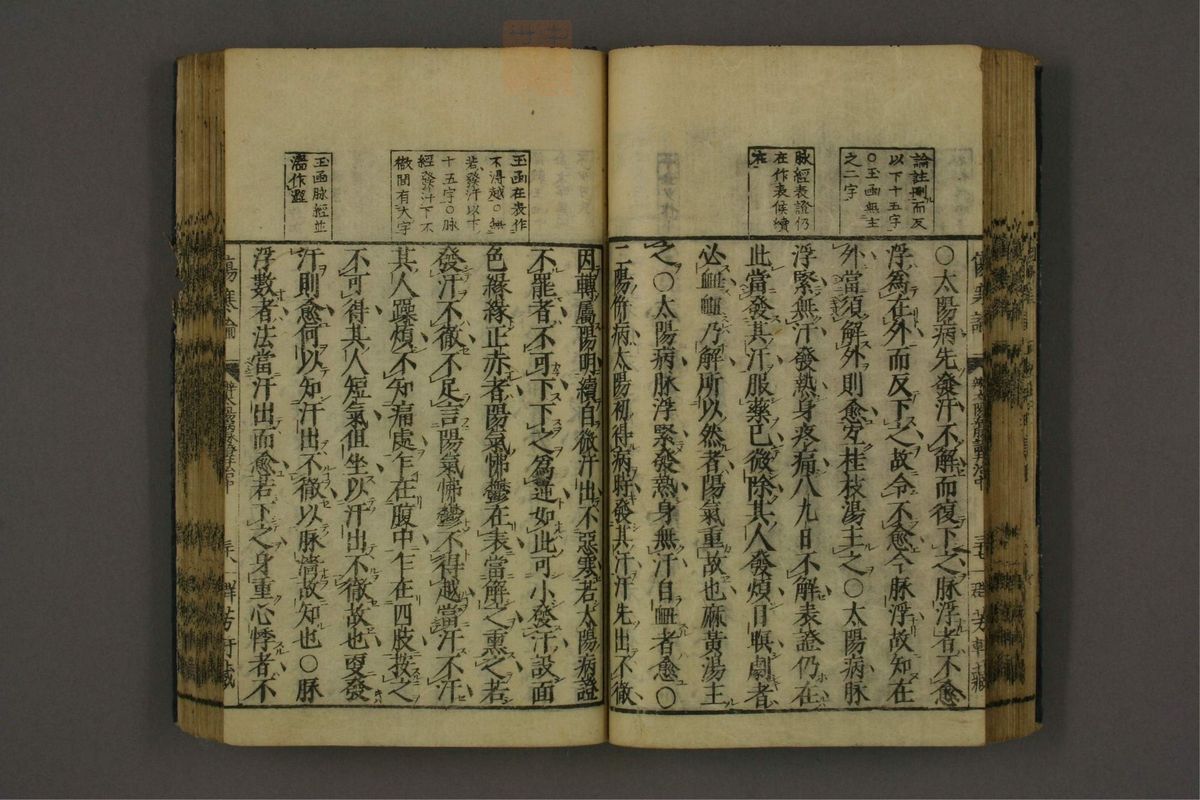 論註刪而反
以下十五字
〇玉函無主
之二字
脉經表證仍
在作表候續
在
〇太陽病先發汗不解而復下之脉浮者不愈
浮爲在外而反下之故令不愈今脉浮故知在
外當須解外則愈宜桂枝湯主之〇太陽病脉
浮緊無汗發熱身疼痛八九日不解表證仍在
此當發其汗服藥已微除其人發煩目瞑劇者
必衄衄乃解所以然者陽氣重故也麻黃湯主
之〇太陽病脉浮緊發熱身無汗自衄者愈〇
二陽併病太陽初得病時發其汗汗先出不徹
玉函在表作
不得越〇無
若發汗以下
十五字〇脉
經發汗下不
徹間有大字
玉函脉經並
濇作澀
因轉屬陽明續自微汗出不惡寒若太陽病證
不罷者不可下下之爲逆如此可小發汗設面
色緣緣正赤者陽氣怫鬱在表當解之熏之若
發汗不徹不足言陽氣怫鬱不得越當汗不汗
其人躁煩不知痛處乍在腹中乍在四肢按之
不可得其人短氣但坐以汗出不徹故也更發
汗則愈何以知汗出不徹以脉濇故知也〇脉
浮數者法當汗出而愈若下之身重心悸者不
傷寒論